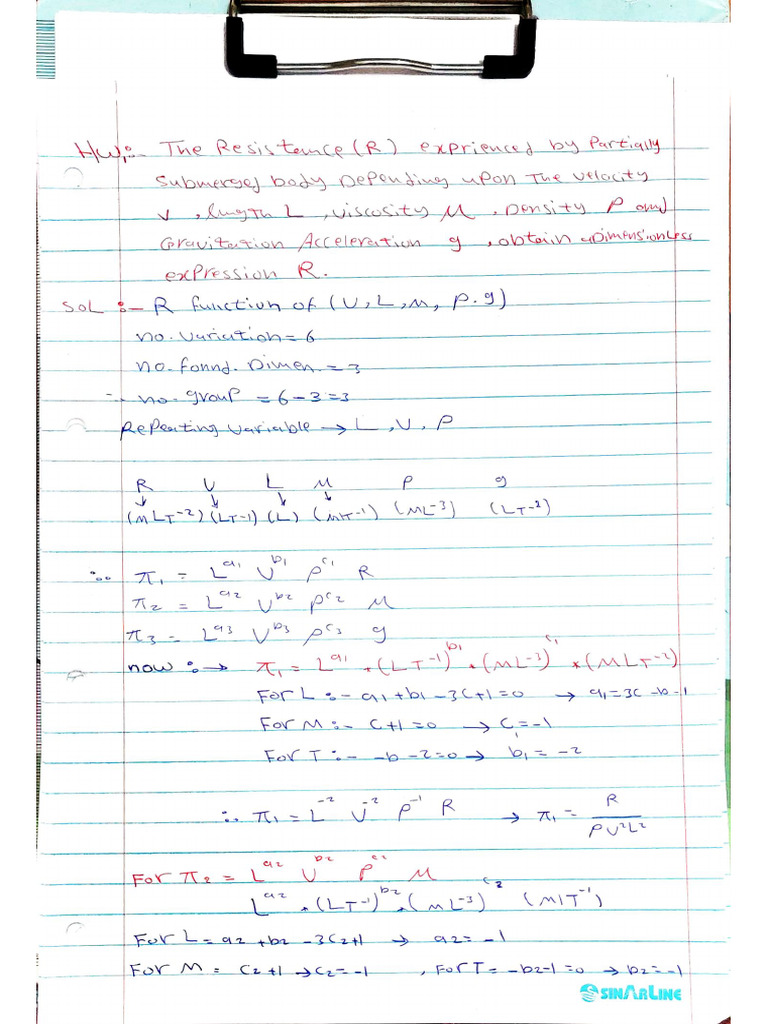 H/W1:- The Resistance (R) exprienced by Partially
submerged body Depending upon The velocity
v, length L, viscosity μ, Density ρ and
Gravitation Acceleration g, obtain a Dimensionless
expression R.
SOL :- R function of (U, L, μ, ρ. g)
no. variation = 6
no. found. Dimen. = 3
∴ no. group = 6-3 = 3
Repeating variable → L, U, ρ
R U L μ ρ g
(MLT-2) (LT-1) (L) (MT-1) (ML-3) (LT-2)
∴ π1 = L^a1 U^b1 ρ^c1 R
π2 = L^a2 U^b2 ρ^c2 μ
π3 = L^a3 U^b3 ρ^c3 g
now :→ π1 = L^a1 * (LT-1)^b1 * (ML-3)^c1 * (MLT-2)
For L :- a1+b1-3c+1=0 → a1=3c-b-1
For M :- c+1=0 → c=-1
For T :- -b-2=0 → b1=-2
∴ π1 = L^-2 U^-2 ρ^-1 R → π1 = R / ρU²L²
For π2 = L^a2 U^b2 ρ^c2 μ
L^a2 * (LT-1)^b2 * (ML-3)^c2 (M/T-1)
For L = a2+b2-3c2+1 → a2=-1
For M = c2+1 → c2=-1 , For T = -b2-1=0 → b2=-1
SINARLINE